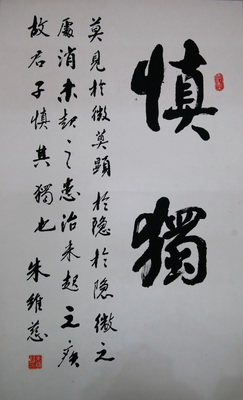 慎獨
莫見於微莫顯於隱於隱微之
處消未起之患治未起之疾
故君子慎其獨也 朱維慈